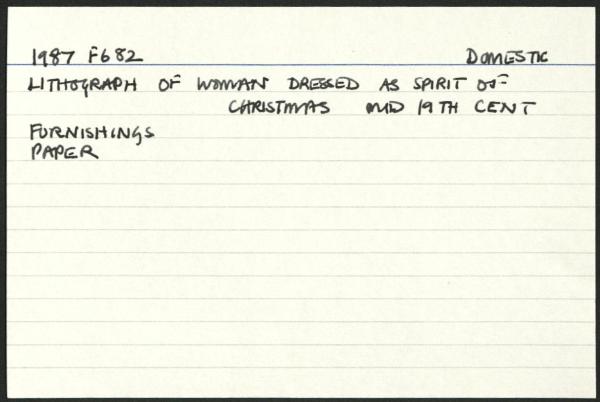 1987 F682 DOMESTIC
LITHOGRAPH OF WOMAN DRESSED AS SPIRIT OF
CHRISTMAS MID 19TH CENT
FURNISHINGS
PAPER